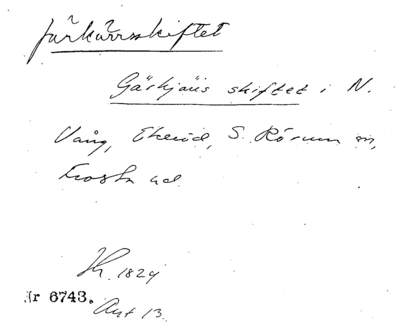 färkärrsskiftet
Gäskjäus skiftet i N.
Vång, Ekeröd, S. Rörum m,
Frosta hd
Hr. 1824
Nr 6743.
Akt 13.